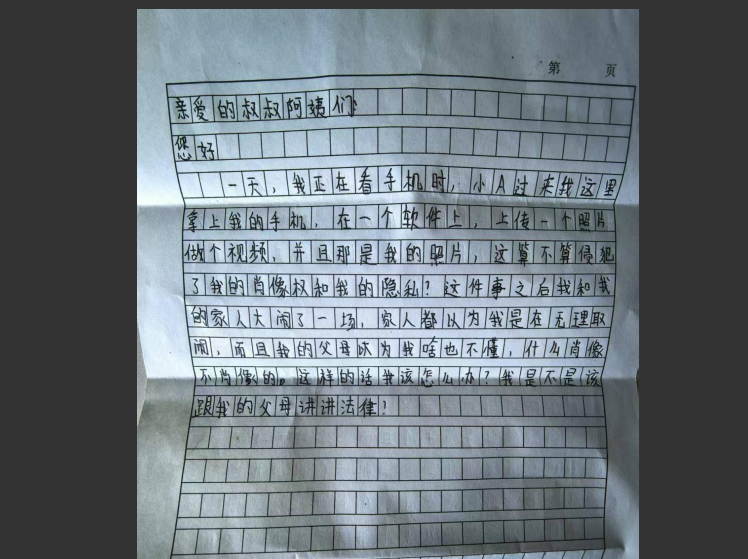 第 页
亲爱的叔叔阿姨们
您好
一天，我正在看手机时，小A过来我这里
拿上我的手机，在一个软件上，上传一个照片
做个视频，并且那是我的照片，这算不算侵犯
了我的肖像权和我的隐私？这件事之后我和我
的家人大闹了一场，家人都以为我是在无理取
闹，而且我的父母以为我啥也不懂，什么肖像
不肖像的。这样的话我该怎么办？我是不是该
跟我的父母讲讲法律？